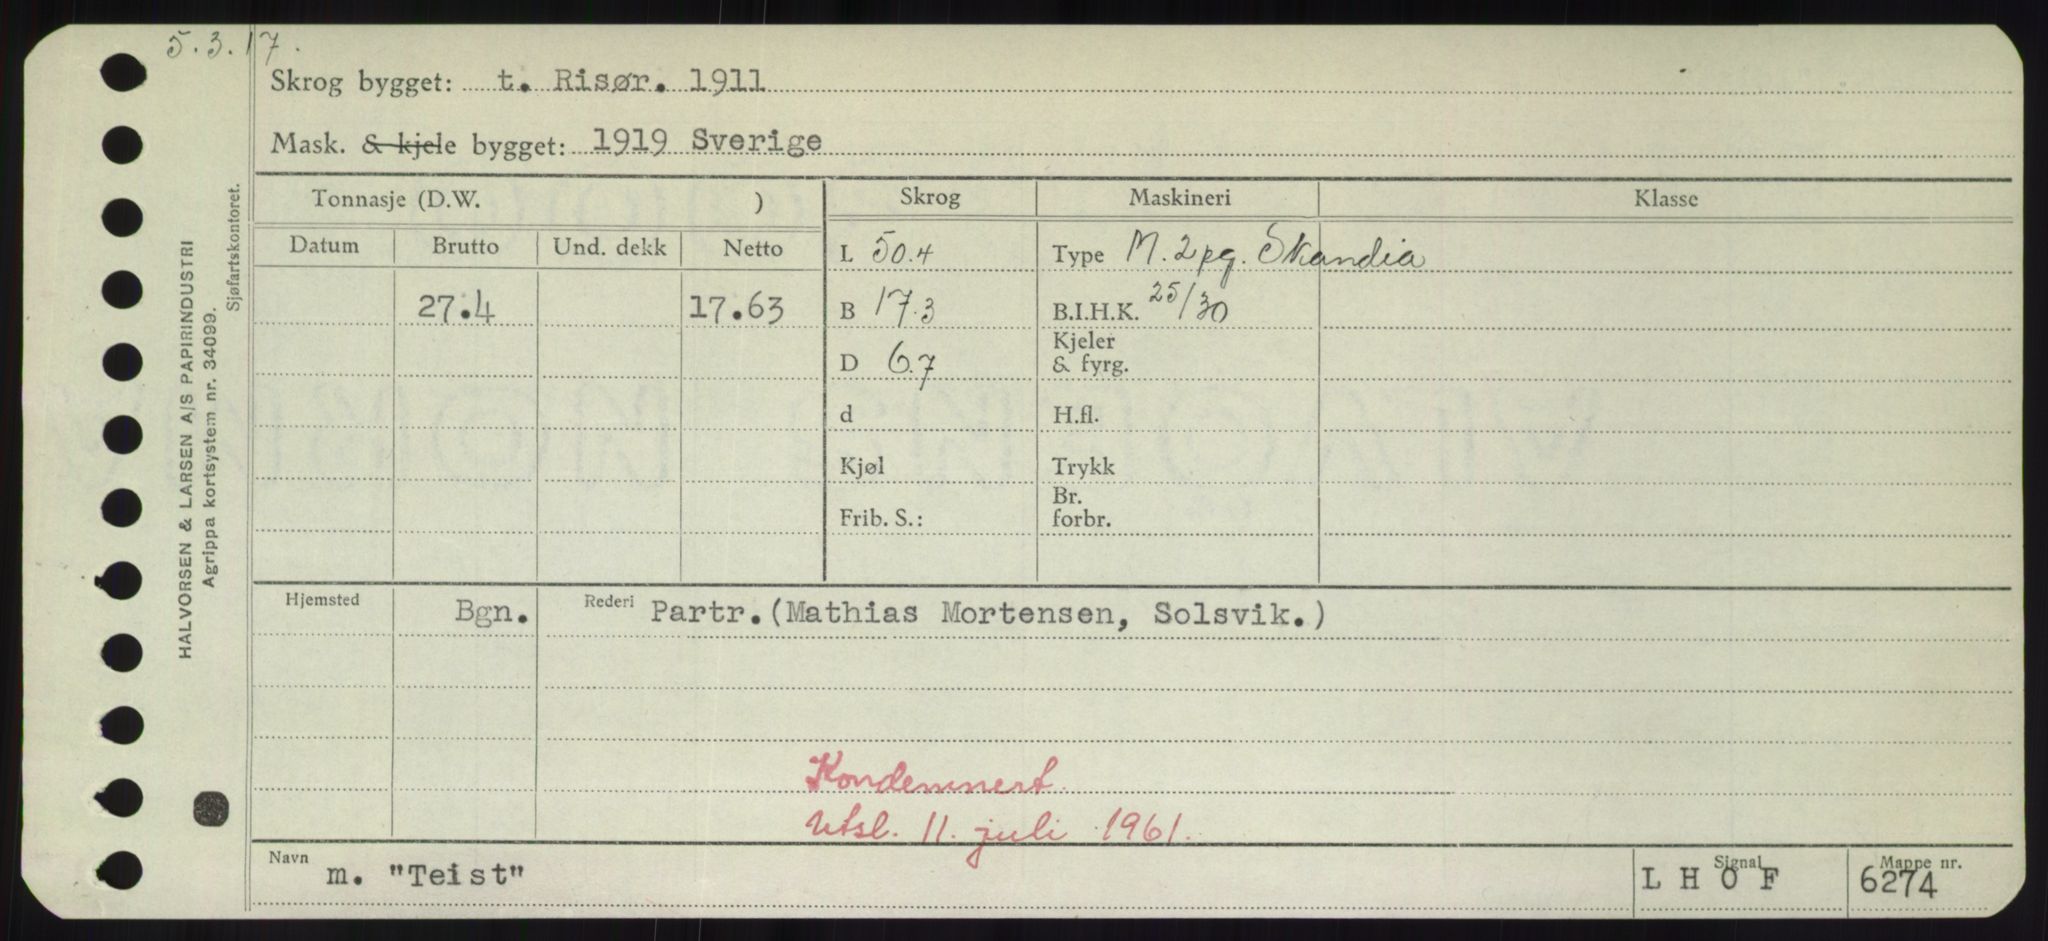 5.3.17.
Skrog bygget: t. Risør. 1911
Mask. & kjele bygget: 1919 Sverige
Tonnasje (D.W. )
Skrog
Maskineri
Klasse
Datum
Brutto
Und. dekk
Netto
27.4
17.63
L 50.4
B 17.3
D 6.7
d
Kjøl
Frib. S.:
Type M. 2 pg. Skandia
B.I.H.K. 25/30
Kjeler
& fyrg.
H.fl.
Trykk
Br.
forbr.
Hjemsted Bgn. Rederi Partr.(Mathias Mortensen, Solsvik.)
Kondemnert.
Utsl. 11. juli 1961.
Navn m. "Teist"
Signal
L H O F
Mappe nr.
6274
HALVORSEN & LARSEN A/S PAPIRINDUSTRI
Agrippa kortsystem nr. 34099.
Sjøfartskontoret.